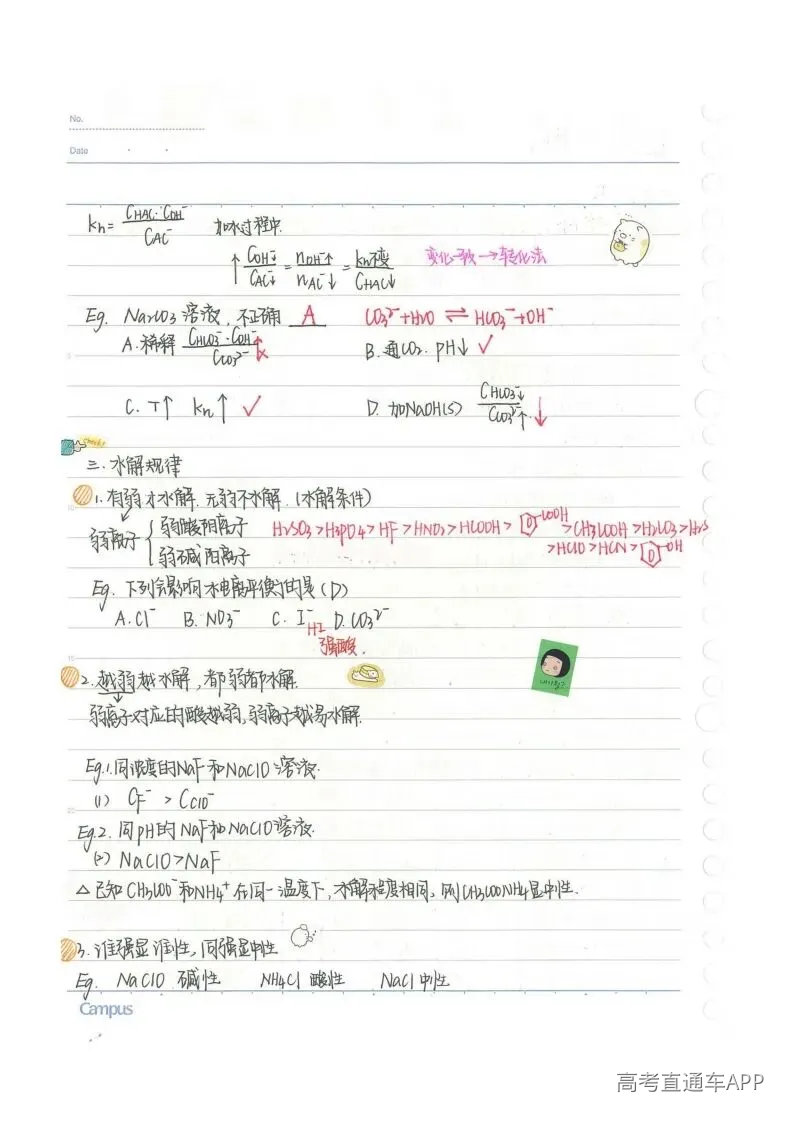 No.
Date
Kh= C_HAC·C_OH⁻ / C_AC⁻ 加水过程中.
↑ C_OH⁻↓ / C_AC⁻↓ = n_OH⁻↑ / n_AC⁻↓ = Kh不变 / C_HAC↓ 变化一致→转化法
Eg. Na₂CO₃溶液, 不正确 A CO₃²⁻+H₂O ⇌ HCO₃⁻+OH⁻
A.稀释 C_HCO₃⁻·C_OH⁻ / C_CO₃²⁻ ↑ × B.通CO₂. pH↓ ✓
C. T↑ Kh↑ ✓ D. 加NaOH(s) C_HCO₃⁻↓ / C_CO₃²⁻↑ ↓
check!
三.水解规律
1.有弱才水解.无弱不水解.(水解条件)
弱离子 { 弱酸阴离子 H₂SO₃>H₃PO₄>HF>HNO₂>HCOOH> -COOH >CH₃COOH>H₂CO₃>H₂S
弱碱阳离子 >HClO>HCN> -OH
Eg. 下列会影响水电离平衡的是(D)
A.Cl⁻ B. NO₃⁻ C. I⁻ D.CO₃²⁻
HI
强酸.
2.越弱越水解, 都弱都水解.
弱离子对应的酸越弱,弱离子越易水解.
Eg.1.同浓度的NaF和NaClO溶液.
(1) C_F⁻ > C_ClO⁻
Eg.2. 同pH的NaF和NaClO溶液.
(2) NaClO>NaF
△已知CH₃COO⁻和NH₄⁺在同一温度下,水解程度相同,则CH₃COONH₄显中性.
3.谁强显谁性,同强显中性
Eg. NaClO 碱性 NH₄Cl 酸性 NaCl 中性
Campus
高考直通车APP